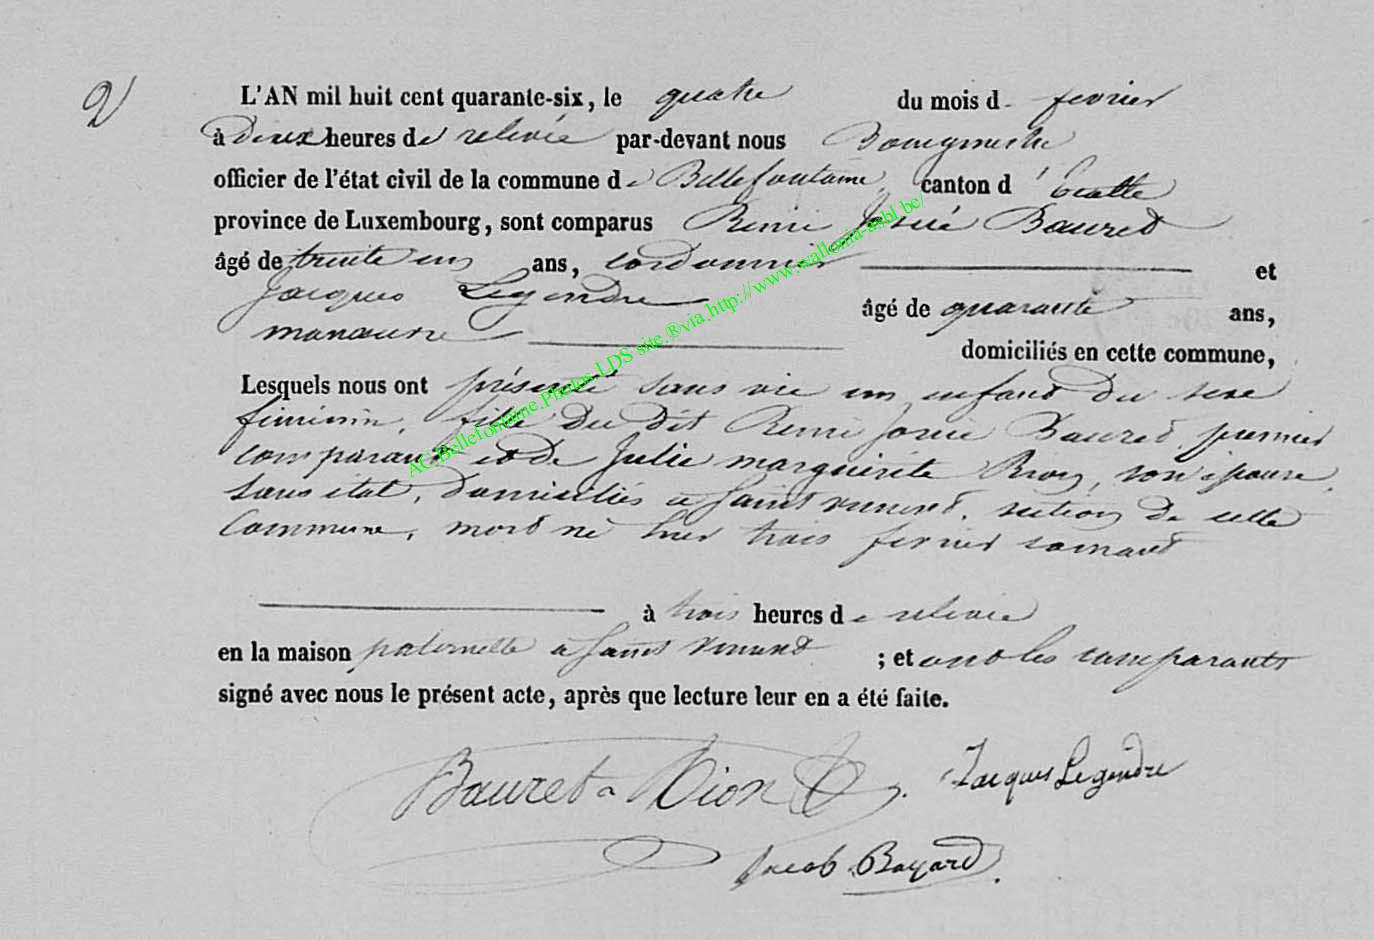 2
L'AN mil huit cent quarante-six, le quatre du mois de fevrier
à deux heures de relevée par-devant nous Bourgmestre
officier de l'état civil de la commune de Bellefontaine, canton d'Etalle
province de Luxembourg, sont comparus Remi Josué Bauret
âgé de trente un ans, cordonnier et
Jacques Legendre âgé de quarante ans,
manœuvre domiciliés en cette commune,
Lesquels nous ont présenté sans vie un enfant du sexe
feminin, fille du dit Remi Josué Bauret, premier
comparant et de Julie marguerite Rion, son épouse,
sans état, domiciliés a Saint vincent, section de cette
commune, mort né hier trois fevrier courant
à trois heures de relevée
en la maison paternelle a Saint Vincent ; et ont les comparants
signé avec nous le présent acte, après que lecture leur en a été faite.
Bauret a Rion Jacques Legendre
Jacob Bayard
AC.Bellefontaine.Photos.LDS site.®via.http://www.wallonia-asbl.be/